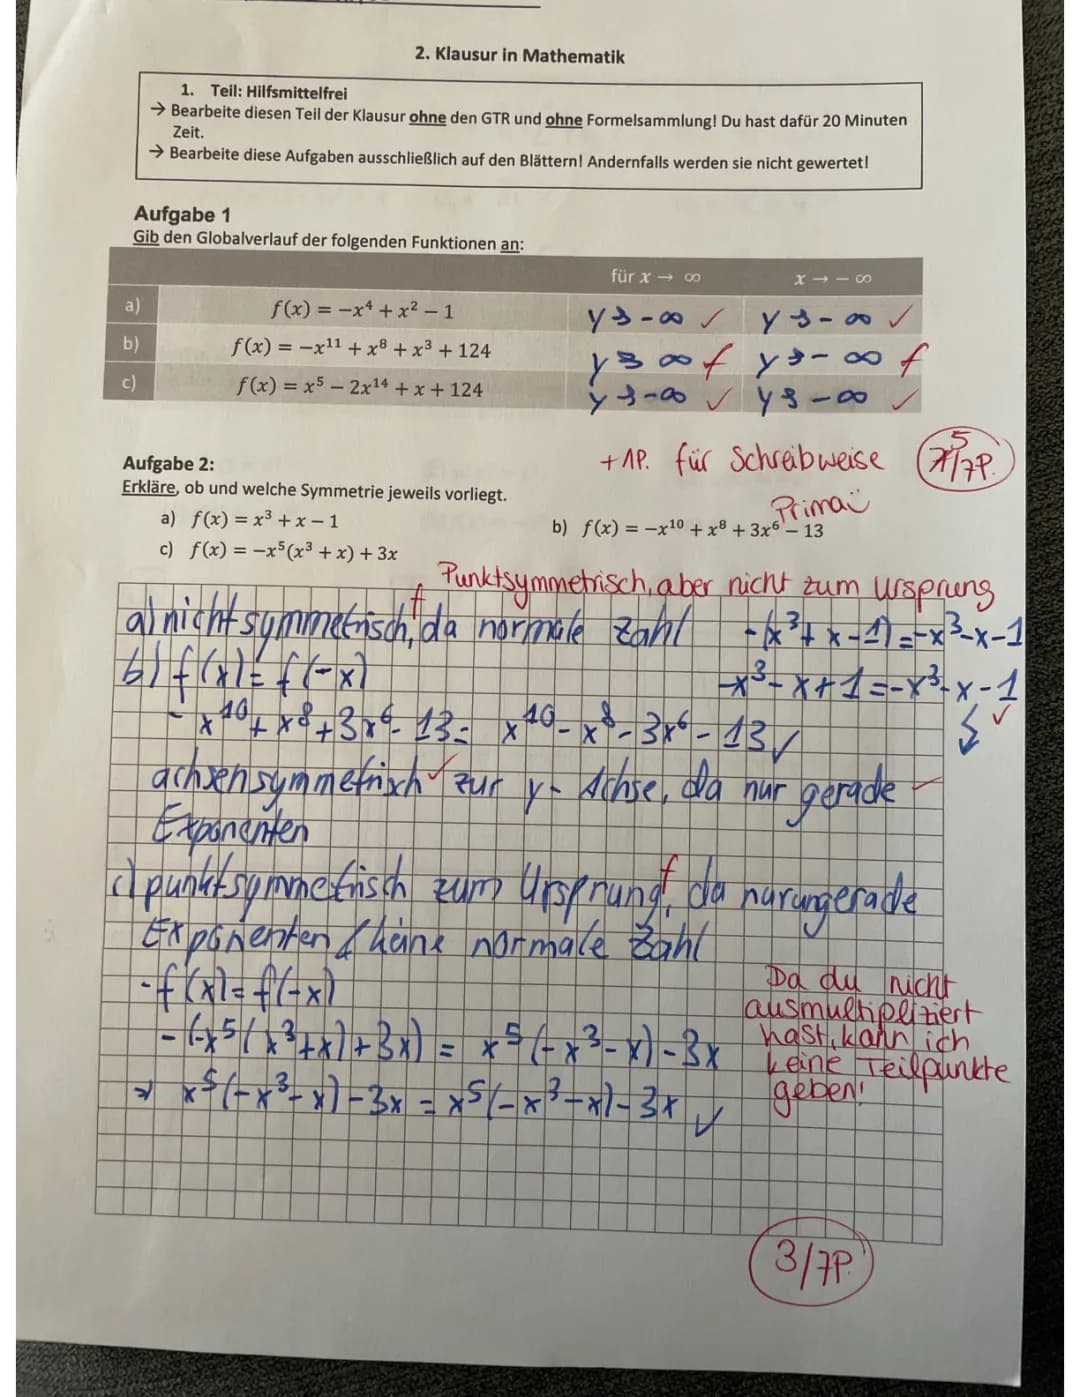 2. Klausur in Mathematik
1. Teil: Hilfsmittelfrei
→ Bearbeite diesen Teil der Klausur ohne den GTR und ohne Formelsammlung! Du hast dafür 20 Minuten
Zeit.
→ Bearbeite diese Aufgaben ausschließlich auf den Blättern! Andernfalls werden sie nicht gewertet!
Aufgabe 1
Gib den Globalverlauf der folgenden Funktionen an:
für x → ∞ x → − ∞
a) f(x) = −x⁴ + x² − 1 y→-∞ ✓ y→-∞ ✓
b) f(x) = −x¹¹ + x⁸ + x³ + 124 y→∞ f y→-∞ f
c) f(x) = x⁵ − 2x¹⁴ + x + 124 y→-∞ ✓ y→-∞ ✓
+1P. für Schreibweise 5/7P.
Aufgabe 2:
Erkläre, ob und welche Symmetrie jeweils vorliegt.
Prima
a) f(x) = x³ + x − 1 b) f(x) = −x¹⁰ + x⁸ + 3x⁶ − 13
c) f(x) = −x⁵(x³ + x) + 3x
Punktsymmetrisch, aber nicht zum Ursprung
a) nicht symmetrisch, f da normale Zahl -(x³+x-1)=-x³-x-1
b) f(x)=f(-x) -x³-x+1=-x³-x-1
-x¹⁰+x⁸+3x⁶-13= x¹⁰-x⁸-3x⁶-13 ✓ ↯ ✓
achsensymmetrisch ✓ zur y-Achse, da nur gerade
Exponenten
c) punktsymmetrisch zum Ursprung, f da nur ungerade
Exponenten / keine normale Zahl
-f(x)=f(-x)
-(-x⁵(x³+x)+3x) = x⁵(-x³-x)-3x
⇒ x⁵(-x³-x)-3x = x⁵(-x³-x)-3x ✓
Da du nicht
ausmultipliziert
hast, kann ich
keine Teilpunkte
geben!
3/7P.